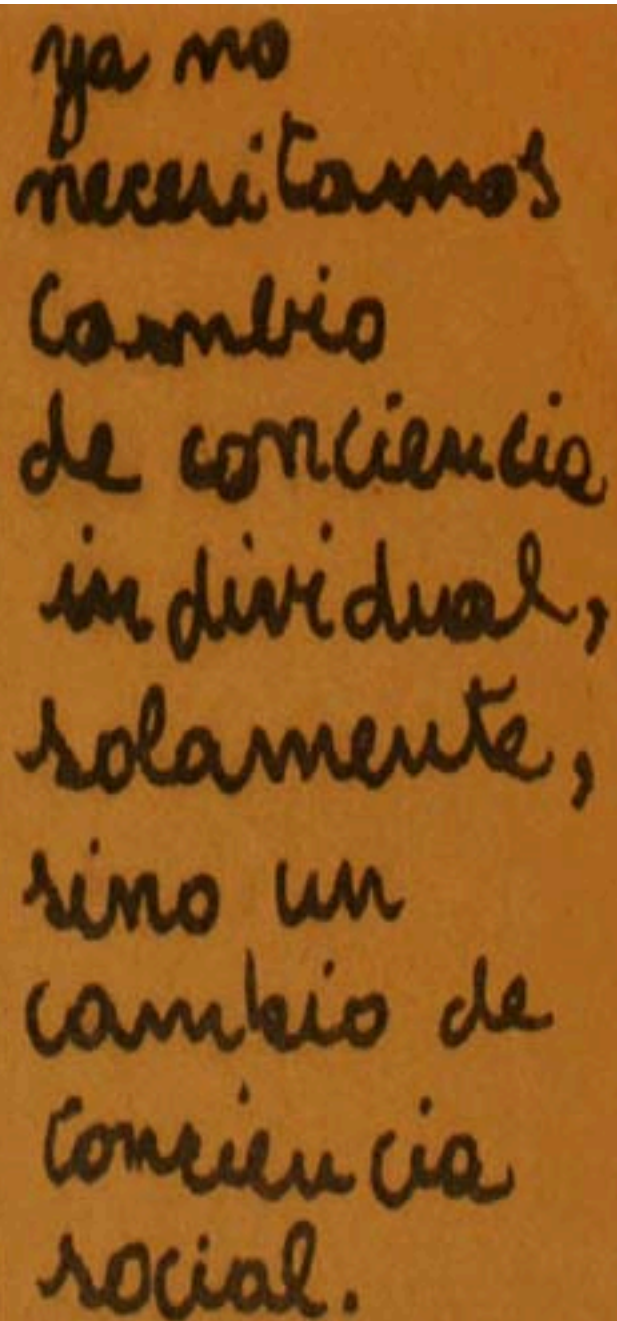 ya no
necesitamos
cambio
de conciencia
individual,
solamente,
sino un
cambio de
conciencia
social.